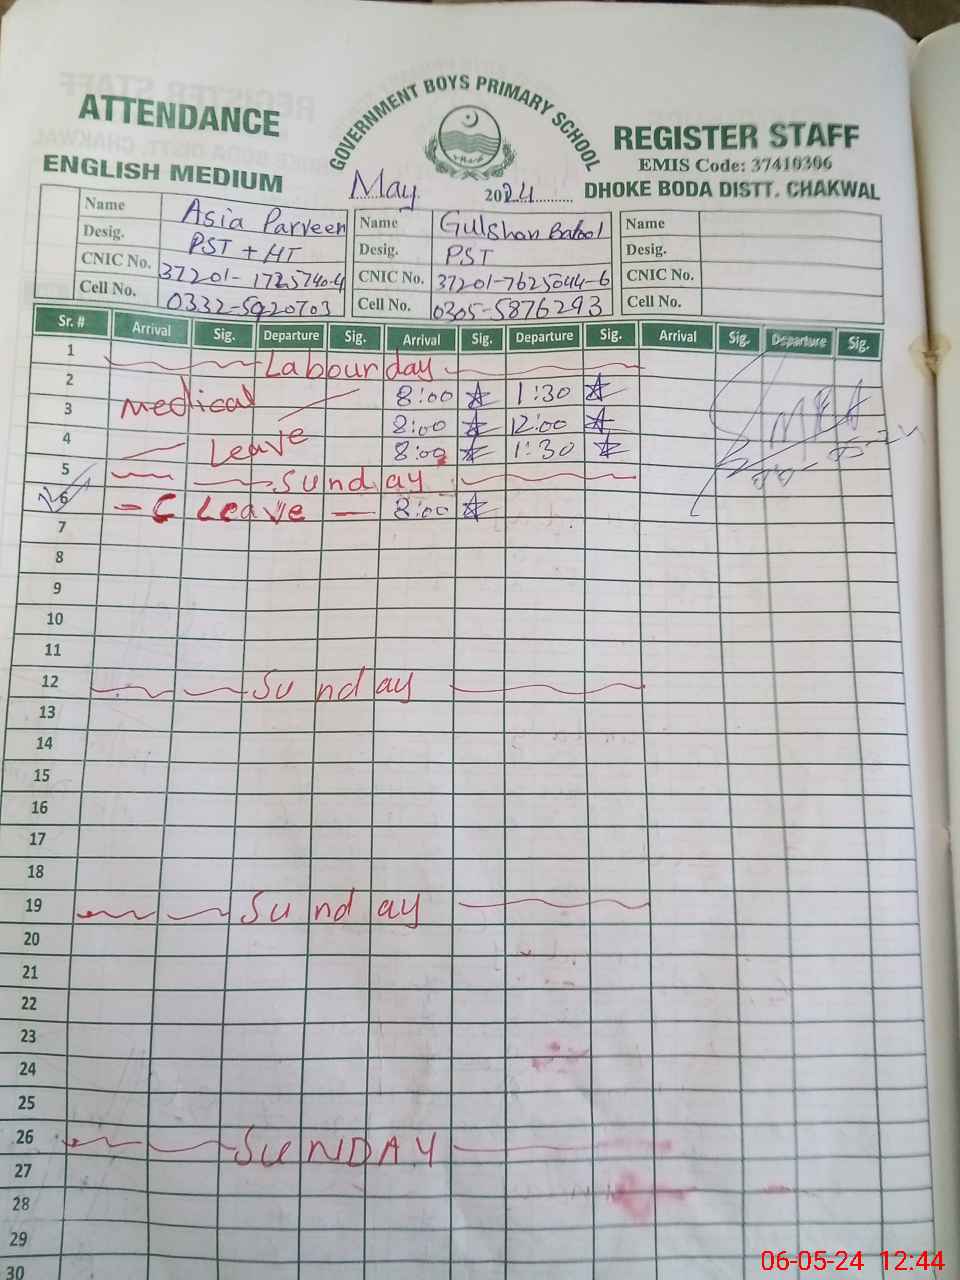 GOVERNMENT BOYS PRIMARY SCHOOL
ATTENDANCE REGISTER STAFF
EMIS Code: 37410306
ENGLISH MEDIUM May 2024 DHOKE BODA DISTT. CHAKWAL
Name Asia Parveen Name Gulshan Batool Name
Desig. PST + HT Desig. PST Desig.
CNIC No. 37201-1725740-4 CNIC No. 37201-7625044-6 CNIC No.
Cell No. 0332-5920703 Cell No. 0305-5876293 Cell No.
Sr. # Arrival Sig. Departure Sig. Arrival Sig. Departure Sig. Arrival Sig. Departure Sig.
1 Labour day
2 Medical 8:00 1:30
3 8:00 12:00
4 Leave 8:00 1:30
5 Sunday
6 C Leave 8:00
7
8
9
10
11
12 Sunday
13
14
15
16
17
18
19 Sunday
20
21
22
23
24
25
26 SUNDAY
27
28
29
30
06-05-24 12:44